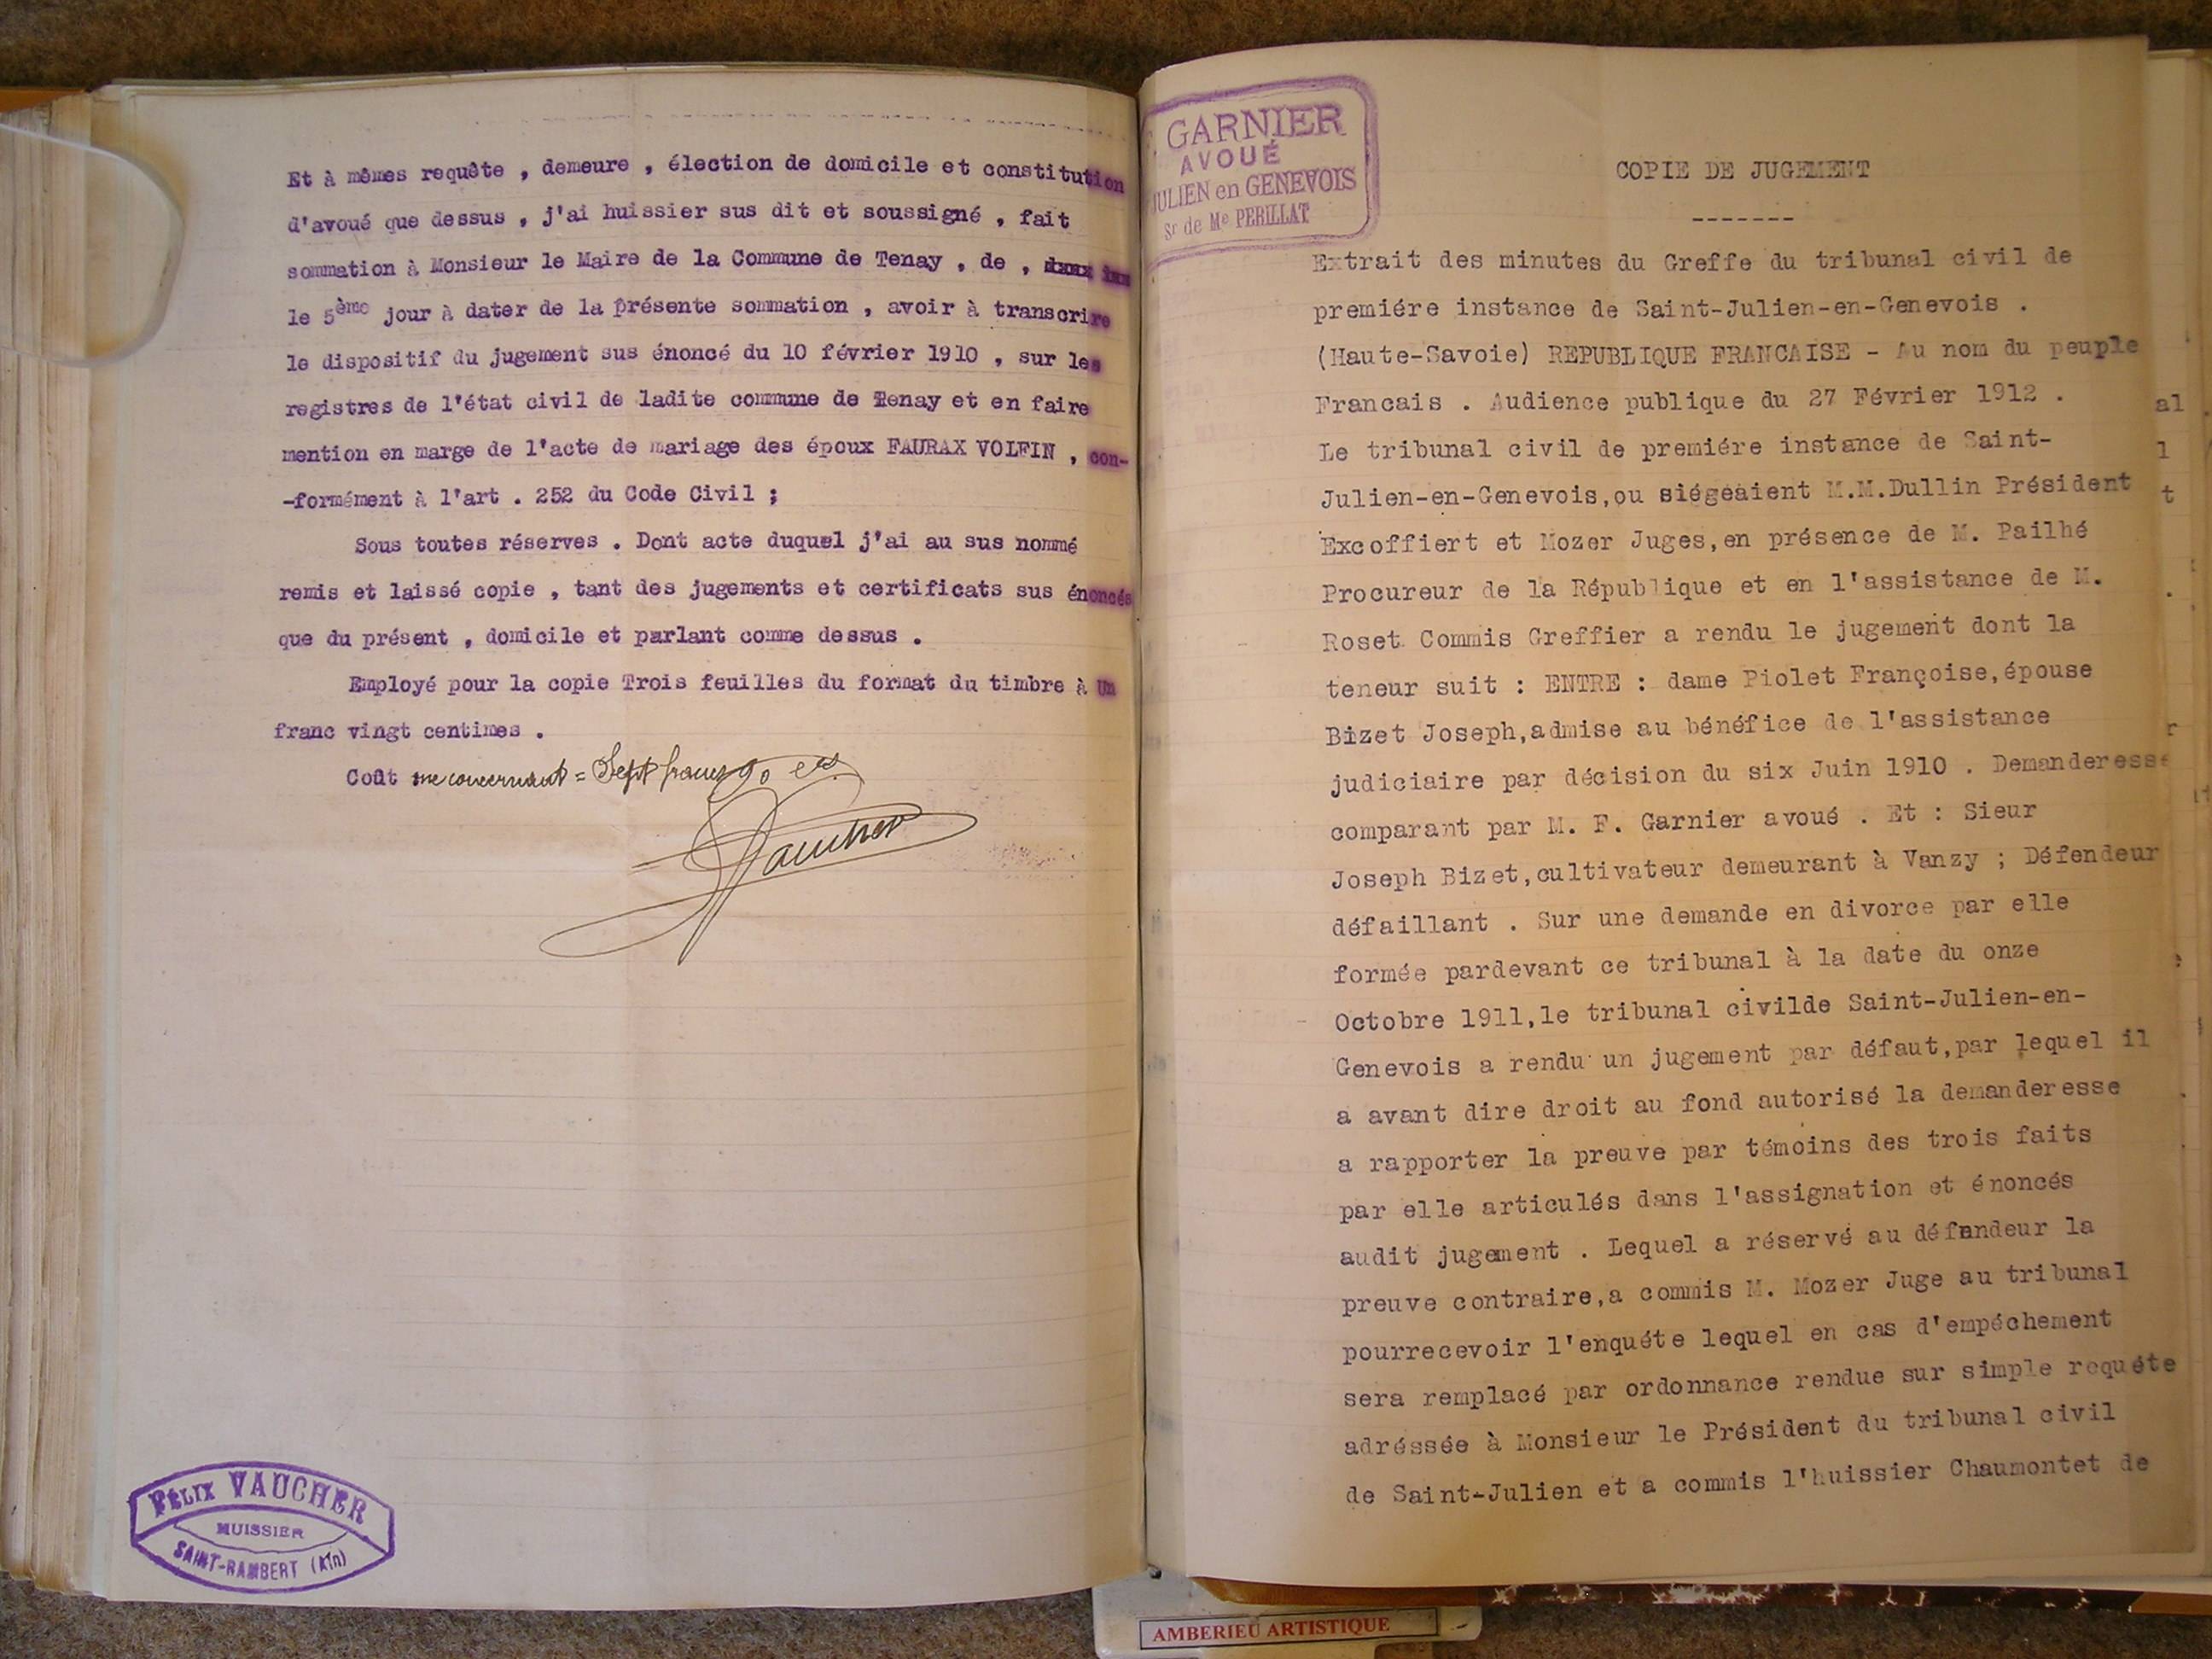 Et à mêmes requête , demeure , élection de domicile et constitution
d'avoué que dessus , j'ai huissier sus dit et soussigné , fait
sommation à Monsieur le Maire de la Commune de Tenay , de ,
le 5ème jour à dater de la présente sommation , avoir à transcrire
le dispositif du jugement sus énoncé du 10 février 1910 , sur les
registres de l'état civil de ladite commune de Tenay et en faire
mention en marge de l'acte de mariage des époux FAURAX VOLFIN , con-
-formément à l'art . 252 du Code Civil ;
Sous toutes réserves . Dont acte duquel j'ai au sus nommé
remis et laissé copie , tant des jugements et certificats sus énoncés
que du présent , domicile et parlant comme dessus .
Employé pour la copie Trois feuilles du format du timbre à Un
franc vingt centimes .
Coût me concernant = Sept francs 90 es
Vaucher
FÉLIX VAUCHER
HUISSIER
SAINT-RAMBERT (Ain)
GARNIER
AVOUÉ
JULIEN en GENEVOIS
Sr de Me PERILLAT
COPIE DE JUGEMENT
-------
Extrait des minutes du Greffe du tribunal civil de
premiére instance de Saint-Julien-en-Genevois .
(Haute-Savoie) REPUBLIQUE FRANCAISE - Au nom du peuple
Francais . Audience publique du 27 Février 1912 .
Le tribunal civil de premiére instance de Saint-
Julien-en-Genevois,ou siégeaient M.M.Dullin Président
Excoffiert et Mozer Juges,en présence de M. Pailhé
Procureur de la République et en l'assistance de M.
Roset Commis Greffier a rendu le jugement dont la
teneur suit : ENTRE : dame Piolet Françoise,épouse
Bizet Joseph,admise au bénéfice de l'assistance
judiciaire par décision du six Juin 1910 . Demanderesse
comparant par M. F. Garnier avoué . Et : Sieur
Joseph Bizet,cultivateur demeurant à Vanzy ; Défendeur
défaillant . Sur une demande en divorce par elle
formée pardevant ce tribunal à la date du onze
Octobre 1911,le tribunal civilde Saint-Julien-en-
Genevois a rendu un jugement par défaut,par lequel il
a avant dire droit au fond autorisé la demanderesse
a rapporter la preuve par témoins des trois faits
par elle articulés dans l'assignation et énoncés
audit jugement . Lequel a réservé au défendeur la
preuve contraire,a commis M. Mozer Juge au tribunal
pourrecevoir l'enquéte lequel en cas d'empéchement
sera remplacé par ordonnance rendue sur simple requéte
adréssée à Monsieur le Président du tribunal civil
de Saint-Julien et a commis l'huissier Chaumontet de
AMBERIEU ARTISTIQUE